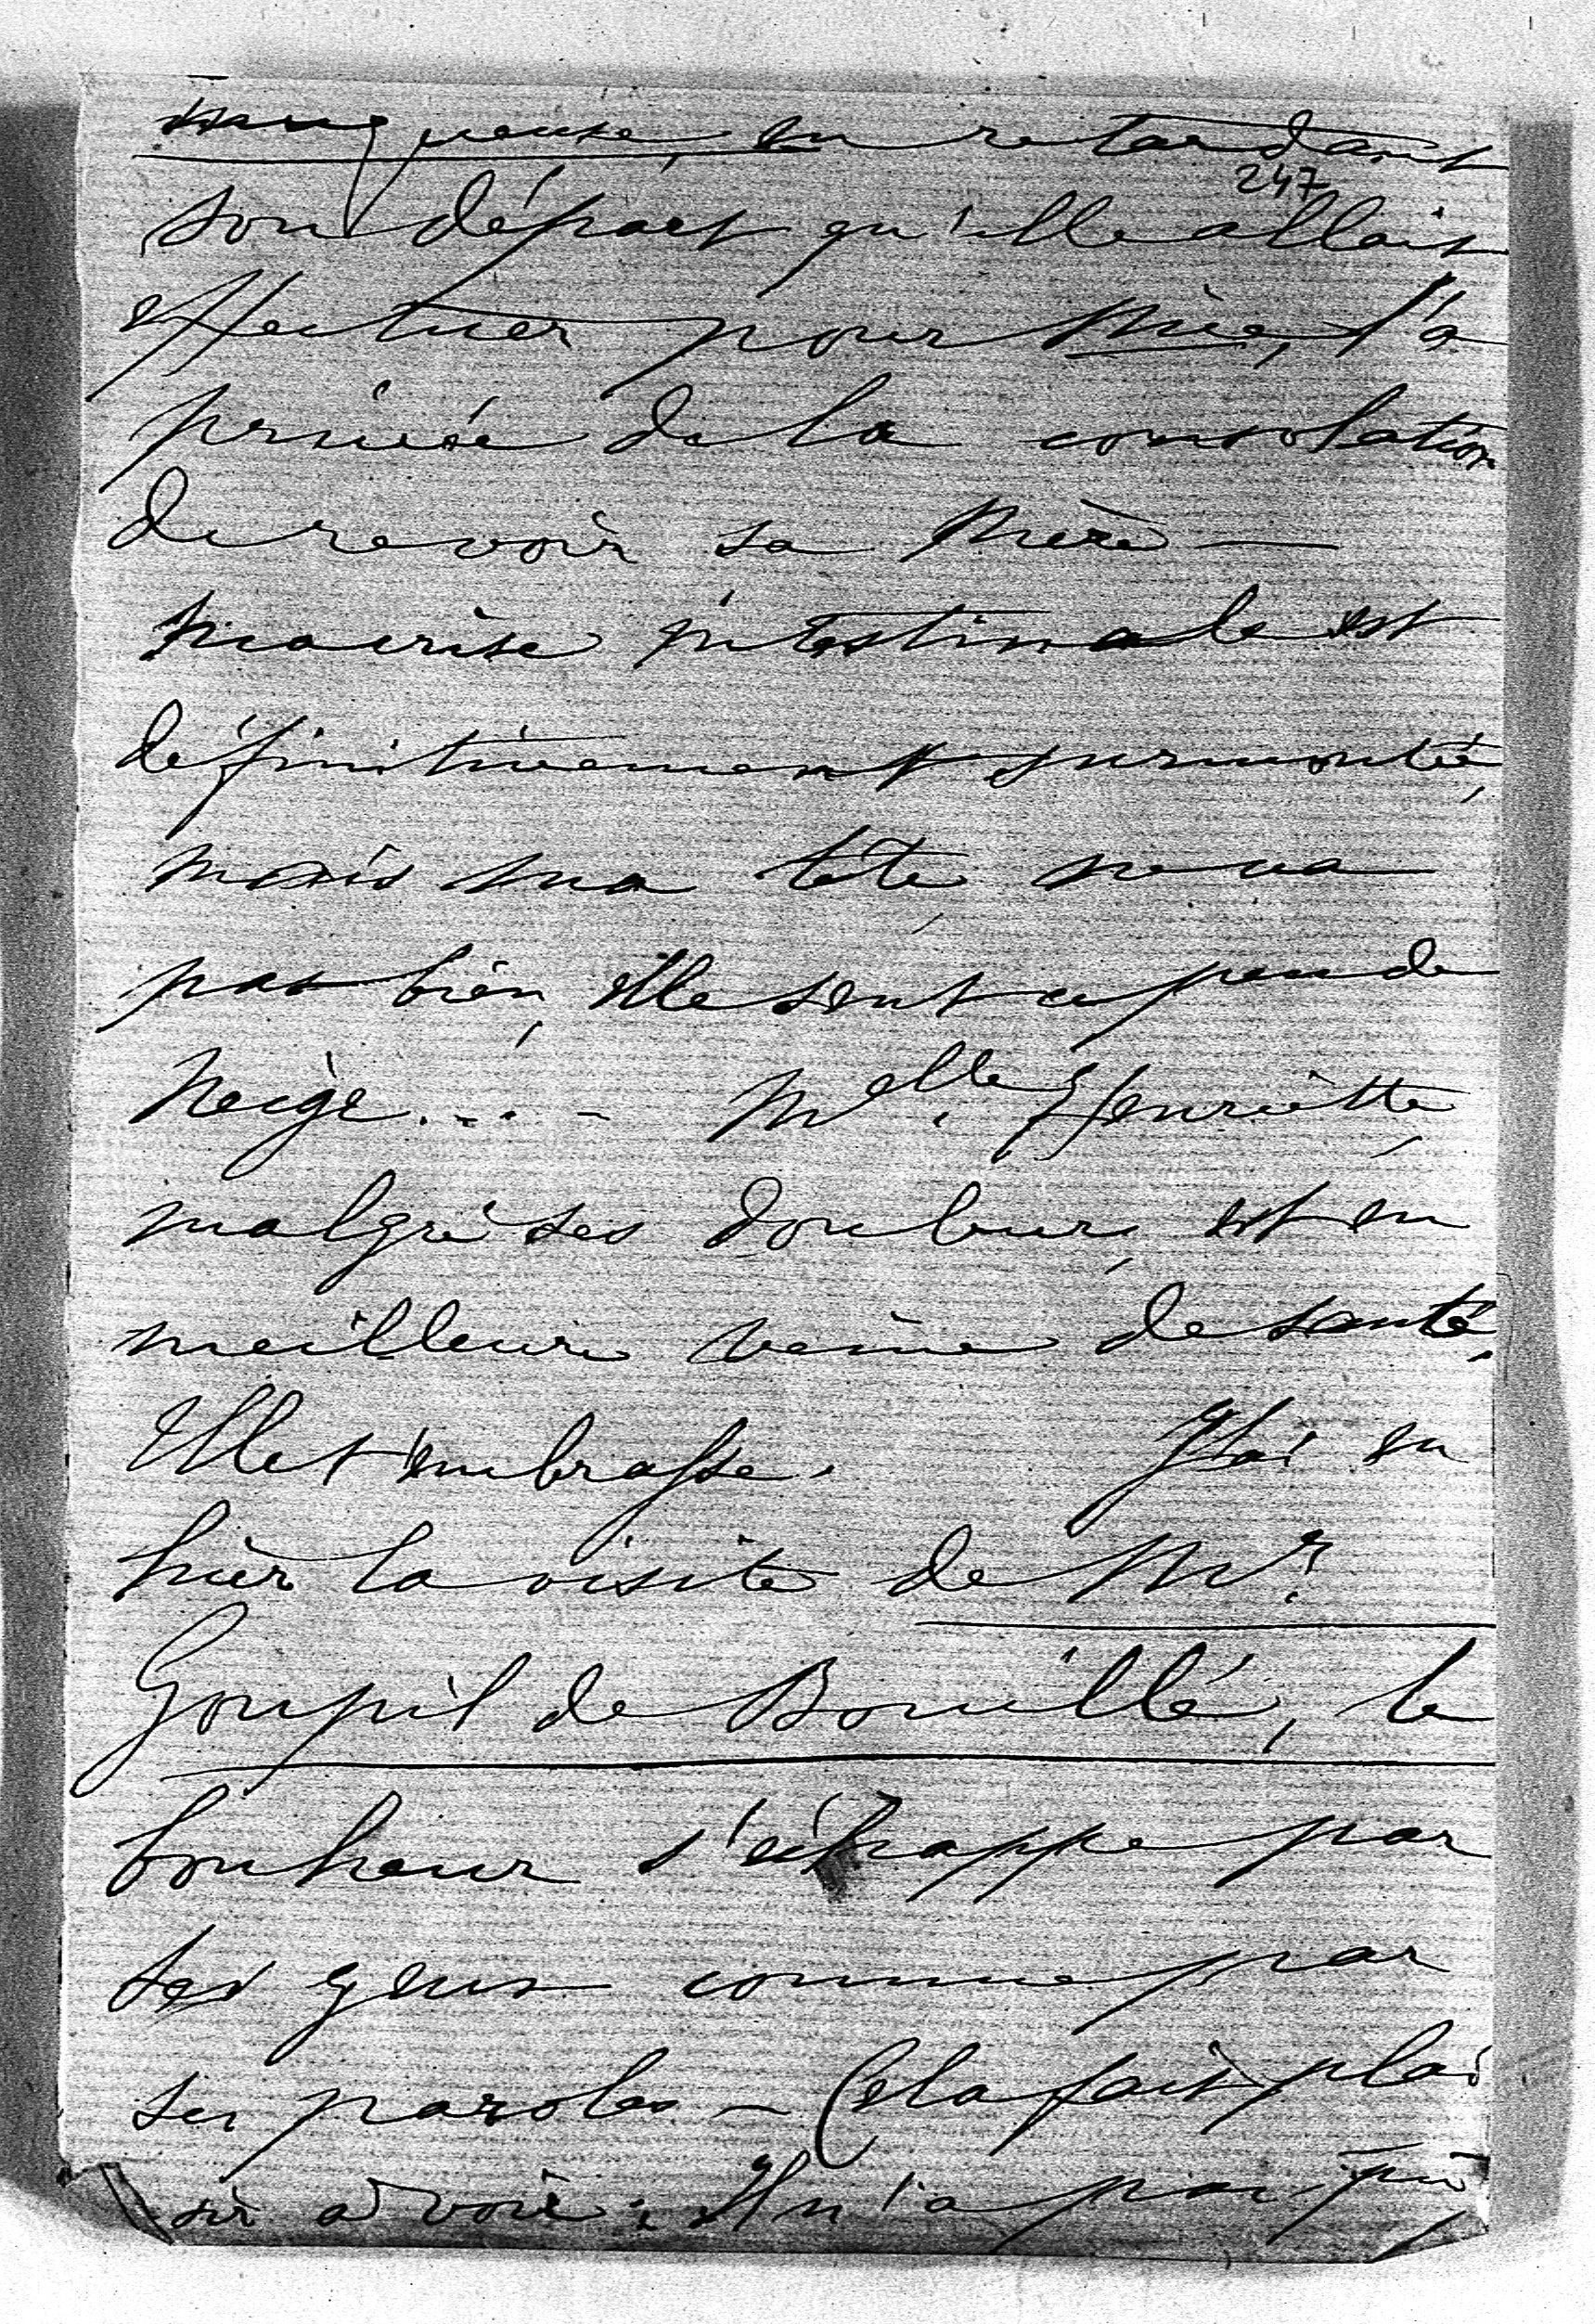 muqueuse, en retardant
247
son départ qu'elle allait
effectuer pour Nice, l'a
privée de la consolation
de revoir sa mère —
Ma crise intestinale est
définitivement surmontée,
mais ma tête, ne va
pas bien, elle sent un peu de
neige.... - Melle Henriette,
malgré ses douleurs, est en
meilleure veine de santé.
Elle t'embrasse. J'ai eu
hier la visite de Mr.
Goupil de Bouillé, le
bonheur s'échappe par
ses yeux comme par
ses paroles — Cela fait plai
sir à voir ; Il n'a pas pu